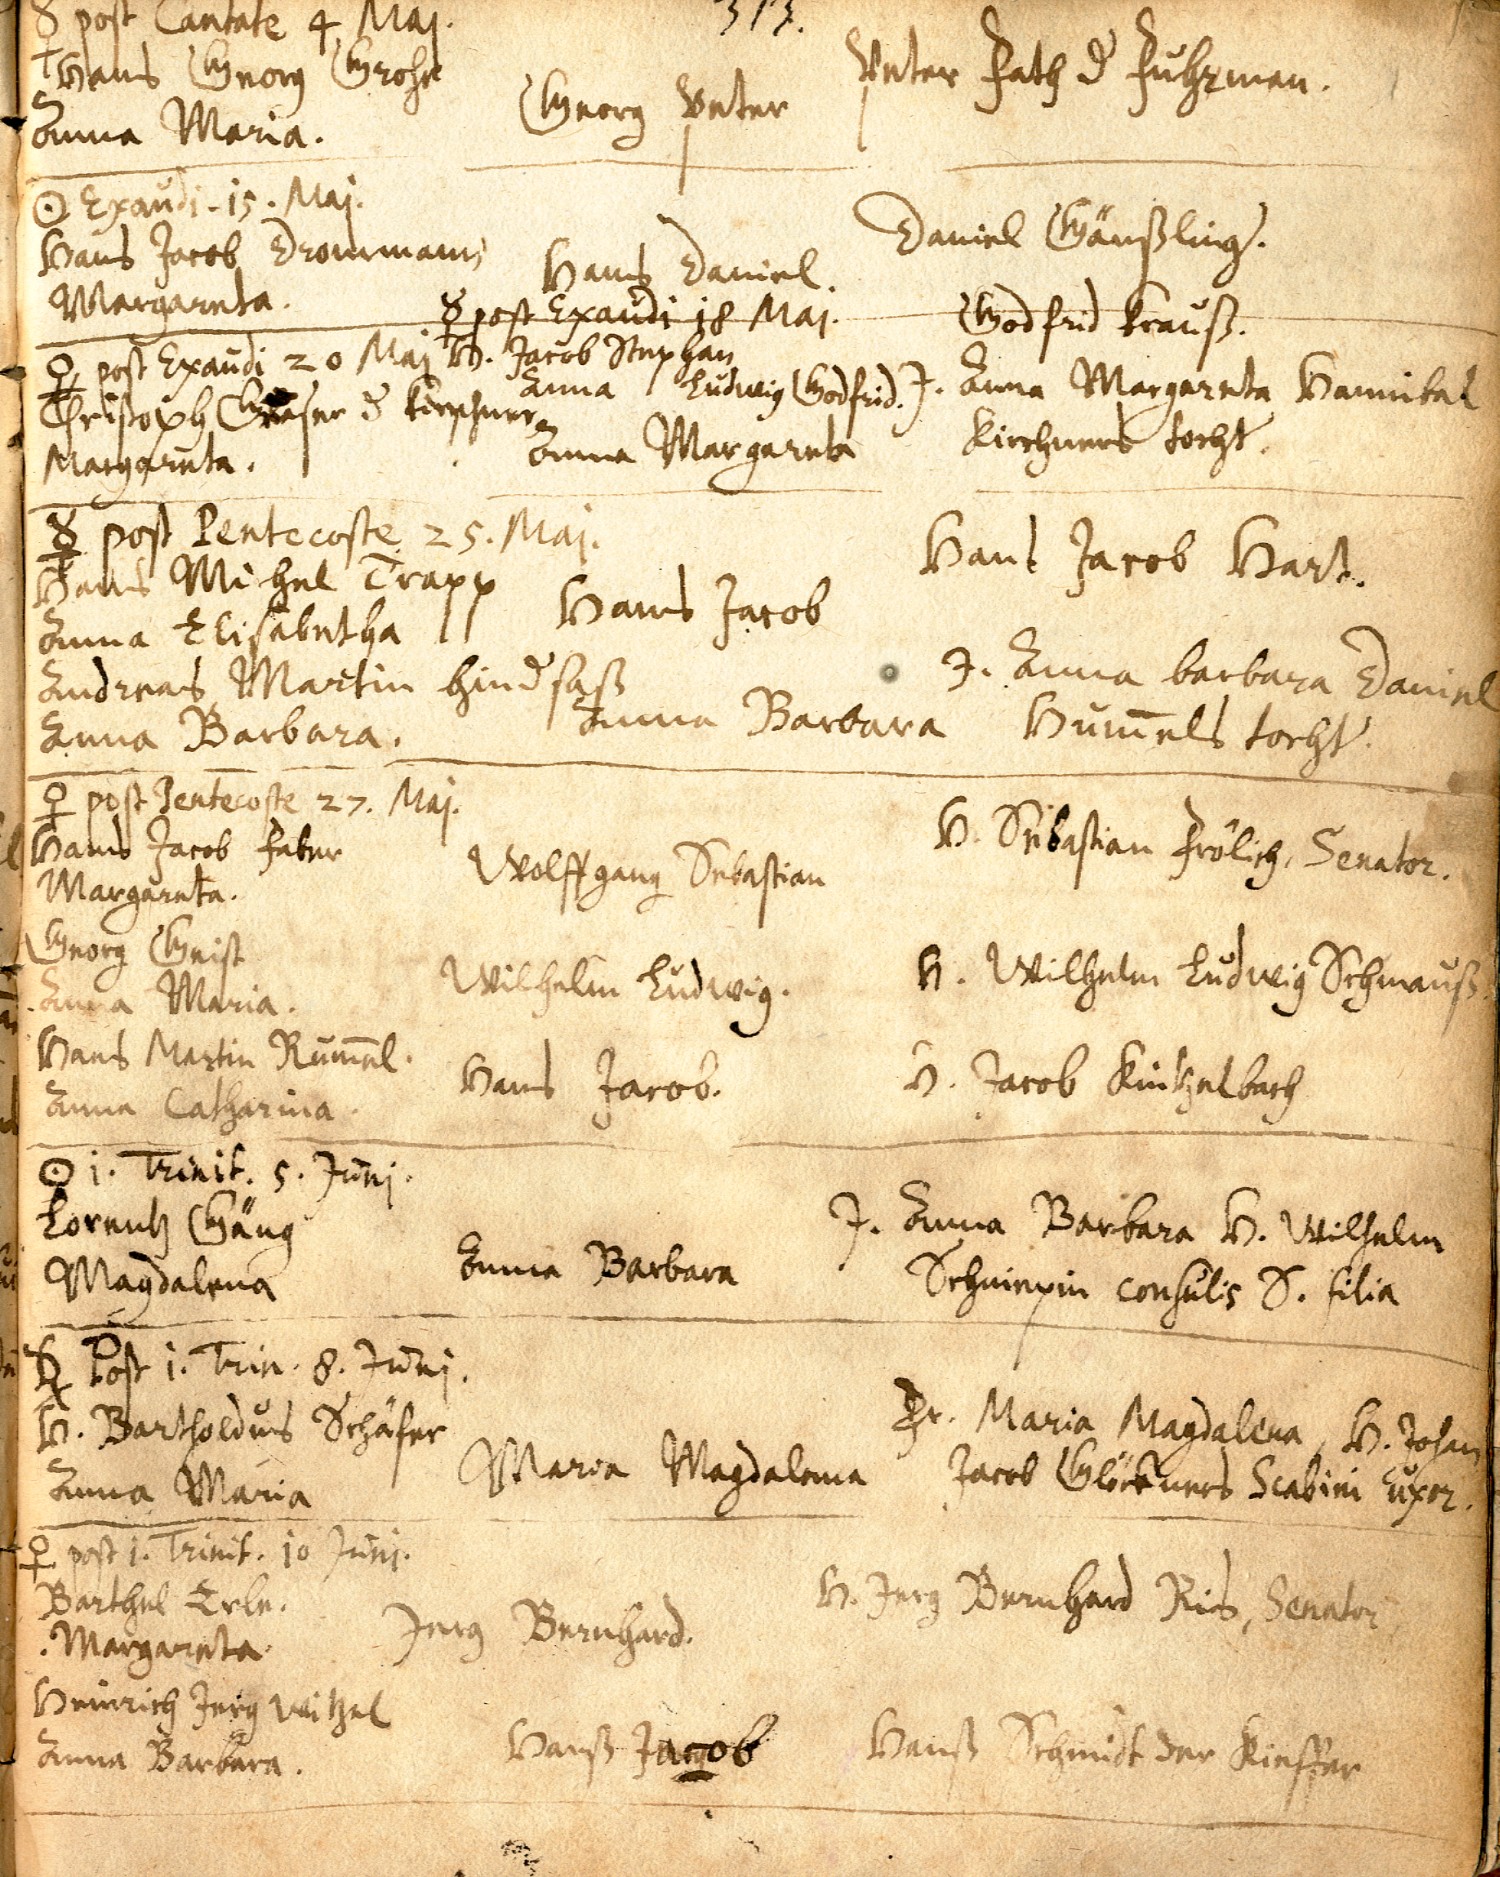 313.
☿ post Cantate 4 Maj.
Hans Georg Grohe
Anna Maria.
Georg Peter
Peter Fath d Fuhrman.
☉ Exaudi. 15. Maj.
Hans Jacob Drommann
Margareta.
Hans Daniel.
Daniel Gänßling.
☿ post Exaudi 18 Maj.
H. Jacob Stephan
Anna
Ludwig Godfrid.
Godfrid Krauß.
♀ post Exaudi 20 Maj
Christoph Gräser d Kirschner
Margareta.
Anna Margareta
J. Anna Margareta Hannibal
Kirchners tocht.
☿ post Pentecoste 25. Maj.
Hans Michel Trapp
Anna Elisabetha
Hans Jacob
Hans Jacob Hart.
Andreas Martin hindsaß
Anna Barbara.
Anna Barbara
J. Anna barbara Daniel
Hum̄els tocht.
♀ post Pentecoste 27. Maj.
Hans Jacob Faber
Margareta.
Wolffgang Sebastian
H. Sebastian Frölich, Senator.
Georg Geist
Anna Maria.
Wilhelm Ludwig.
H. Wilhelm Ludwig Schmauß.
Hans Martin Rum̄el.
Anna Catharina.
Hans Jacob.
H. Jacob Kintzelbach
☉ 1. Trinit. 5. Junj.
Lorentz Gäng
Magdalena
Anna Barbara
J. Anna Barbara H. Wilhelm
Schniepin consulis S. filia
☿ Post 1. Trin. 8. Junj.
H. Bartholdus Schäfer
Anna Maria
Maria Magdalena
Fr. Maria Magdalena, H. Johan
Jacob Glöckners Scabini Uxor.
♀ post 1. Trinit. 10 Junj.
Barthel Erle.
Margareta
Jerg Bernhard.
H. Jerg Bernhard Ries, Senator
Heinrich Jerg Weitzel
Anna Barbara.
Hanß Jacob
Hanß Schmidt der Kieffer